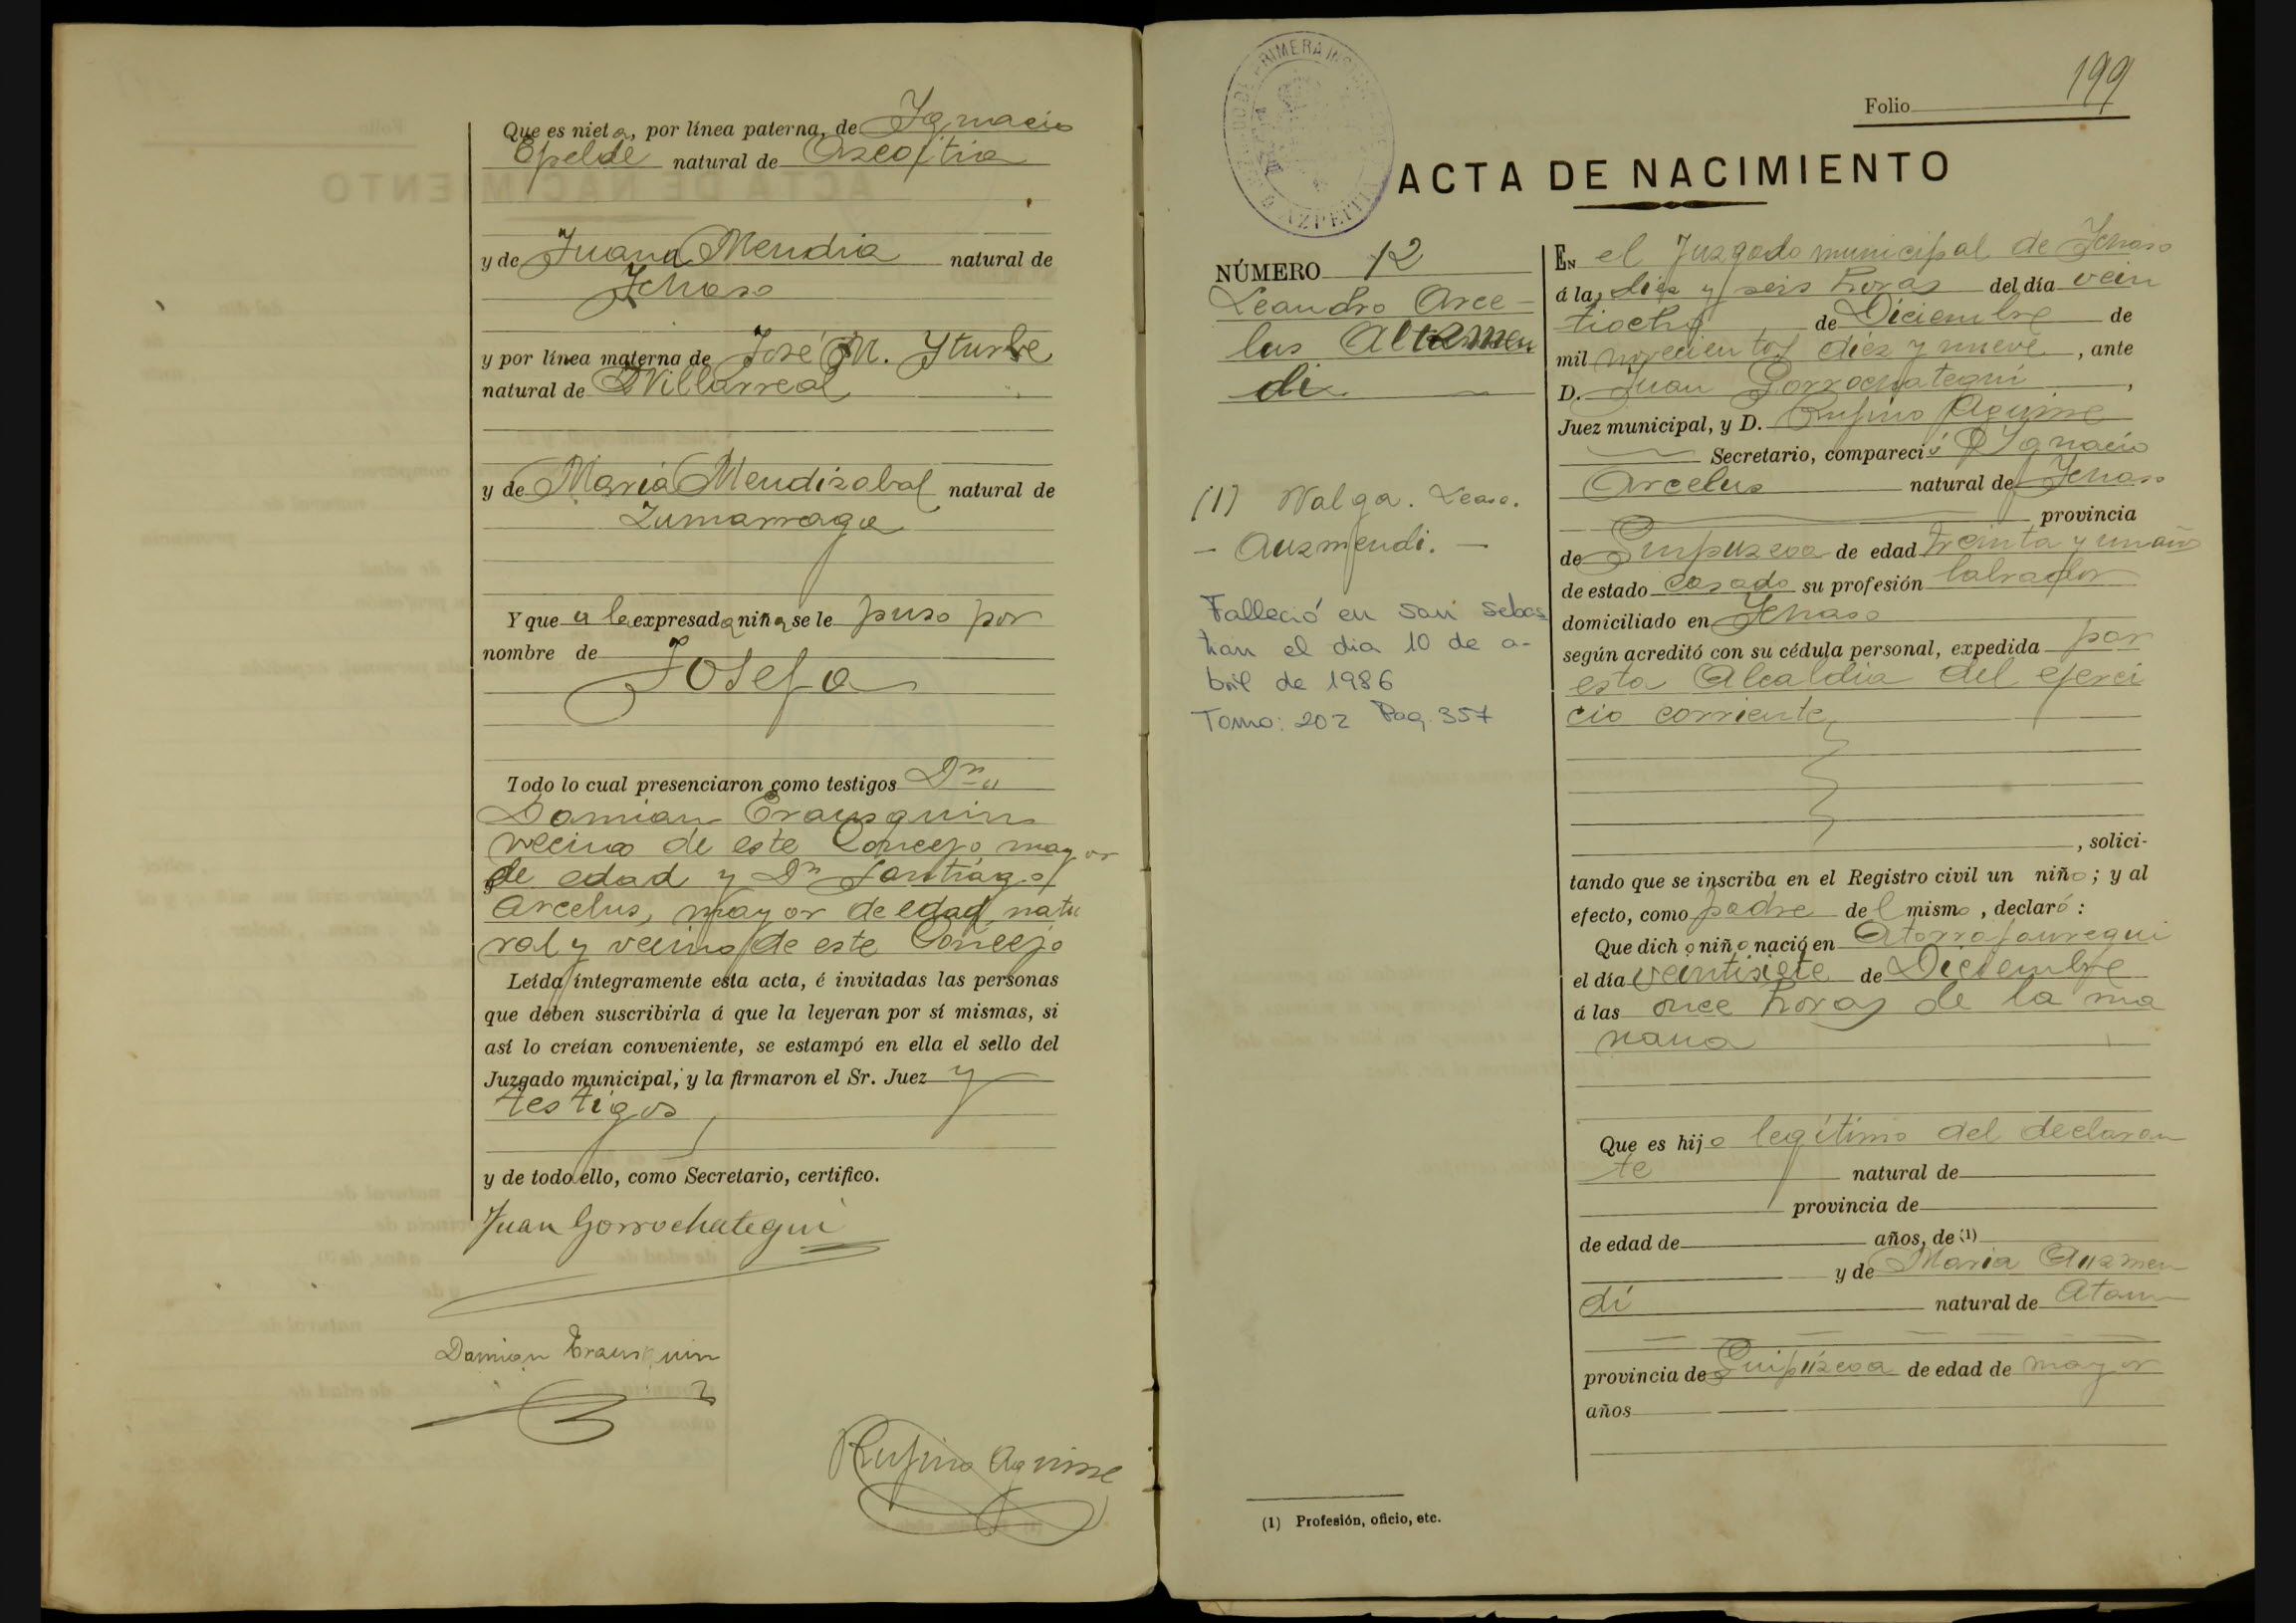 Que es nieta, por línea paterna, de Ygnacio
Epelde natural de Azcoitia
y de Juana Mendia natural de
Ichaso
y por línea materna de José M. Yturbe
natural de Villarreal
y de María Mendizabal natural de
Zumarraga
Y que a la expresada niña se le puso por
nombre de
Josefa
Todo lo cual presenciaron como testigos Dn
Damian Erausquin
vecino de este Concejo mayor
de edad y Dn Santiago
Arcelus, mayor de edad natu
ral y vecino de este Concejo
Leída íntegramente esta acta, é invitadas las personas
que deben suscribirla á que la leyeran por sí mismas, si
así lo creían conveniente, se estampó en ella el sello del
Juzgado municipal, y la firmaron el Sr. Juez y
testigos
y de todo ello, como Secretario, certifico.
Juan Gorrochategui
Damian Erausquin
Rufino Aguirre
199
Folio
ACTA DE NACIMIENTO
NÚMERO 12
Leandro Arce-
lus
di
(1) Valga. Lease.
- Auzmendi. -
Falleció en San Sebas
tian el dia 10 de a-
bril de 1986
Tomo: 202 Pag. 357
EN el Juzgado municipal de Ichaso
á las diez y seis horas del día vein
tiocho de Diciembre de
mil novecientos diez y nueve, ante
D. Juan Gorrochategui,
Juez municipal, y D. Rufino Aguirre
Secretario, compareció D Ygnacio
Arcelus natural de Ichaso
provincia
de Guipuzcoa de edad treinta y un años
de estado casado su profesión labrador
domiciliado en Ichaso
según acreditó con su cédula personal, expedida por
esta Alcaldia del ejerci
cio corriente
, solici-
tando que se inscriba en el Registro civil un niño; y al
efecto, como padre del mismo, declaró:
Que dicho niño nació en Atorrasauregui
el día veintisiete de Diciembre
á las once horas de la ma
nana
Que es hijo legítimo del declaran
te natural de
provincia de
de edad de años, de (1)
y de Maria Auzmen
di natural de Ataun
provincia de Guipúzcoa de edad de mayor
años
(1) Profesión, oficio, etc.